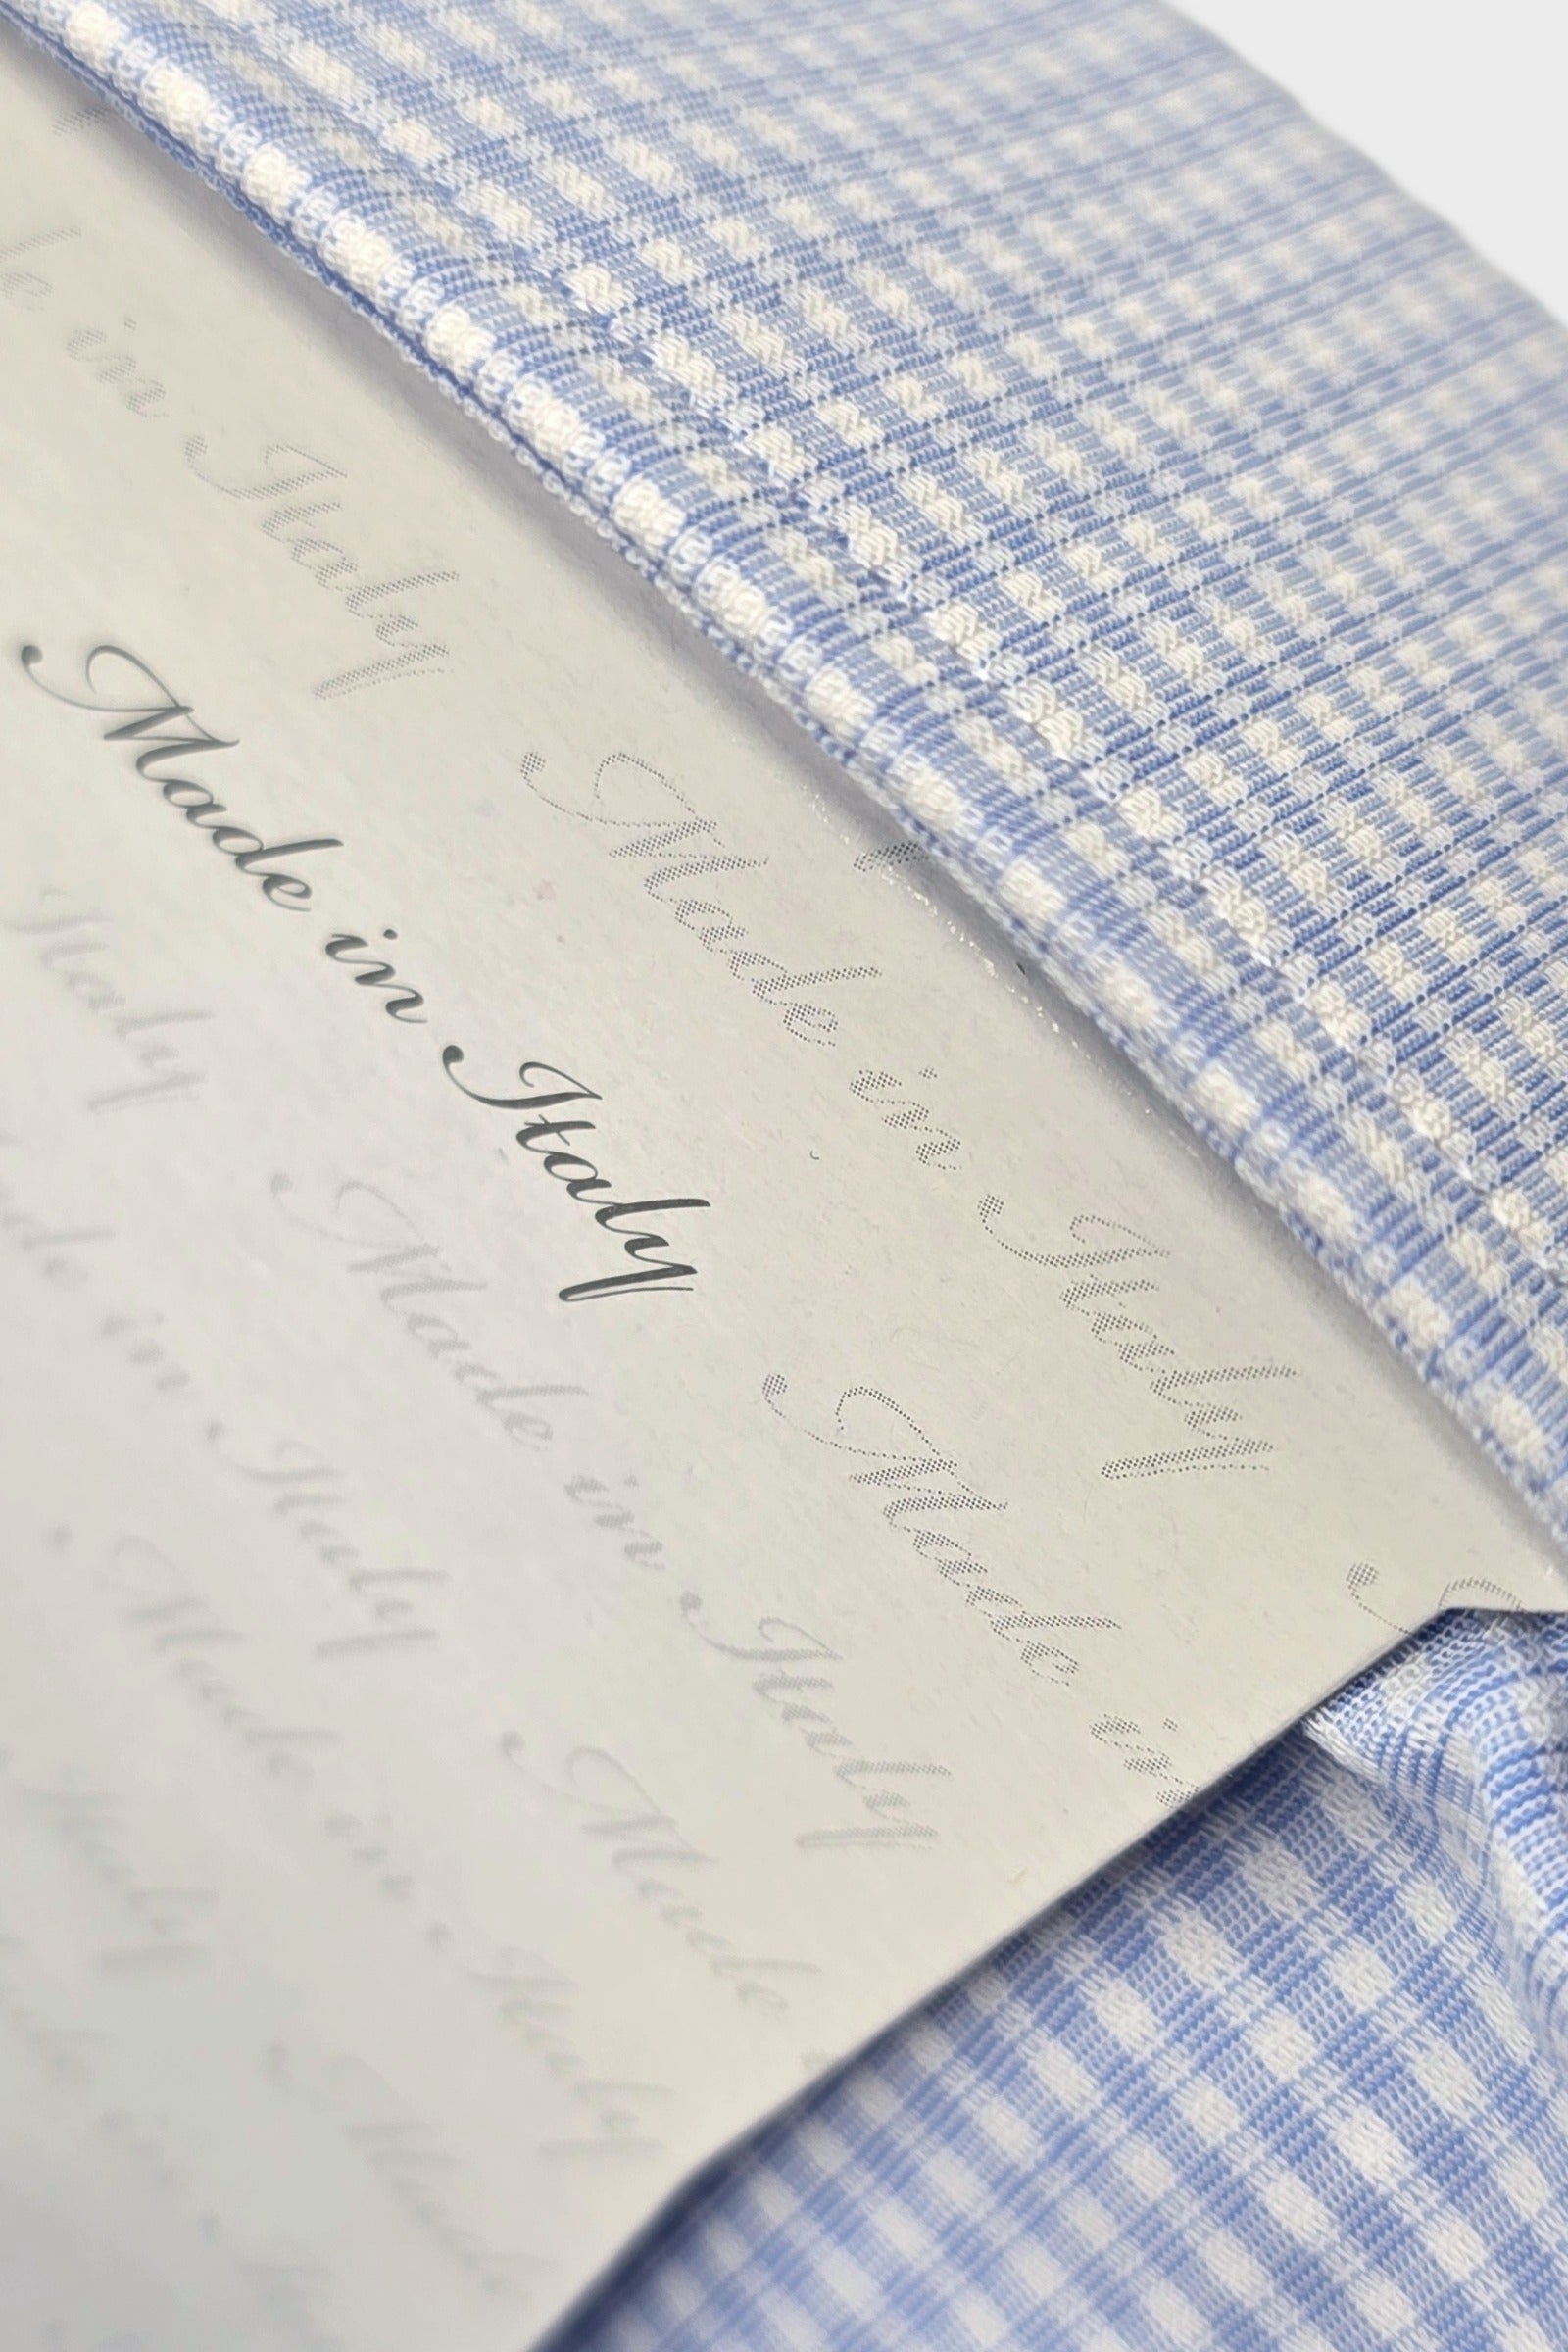 de in Italy
Made in Italy
Made in Italy
Italy
Made in Italy
Made in
Made in Italy
Made in Italy
Made
Italy